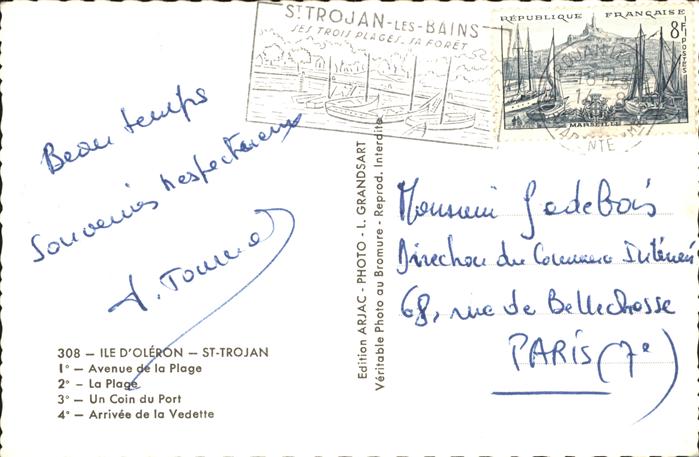 ST TROJAN-LES-BAINS
SES TROIS PLAGES, SA FORÊT
RÉPUBLIQUE FRANÇAISE
8F
POSTES
MARSEILLE
Beau temps
Souvenirs respectueux
308 — ILE D'OLÉRON — ST-TROJAN
1° — Avenue de la Plage
2° — La Plage
3° — Un Coin du Port
4° — Arrivée de la Vedette
Edition ARJAC - PHOTO - L. GRANDSART
Véritable Photo au Bromure - Reprod. Interdite
Monsieur Godebois
Direction du Commerce Intérieur
68, rue de Bellechasse
PARIS (7e)